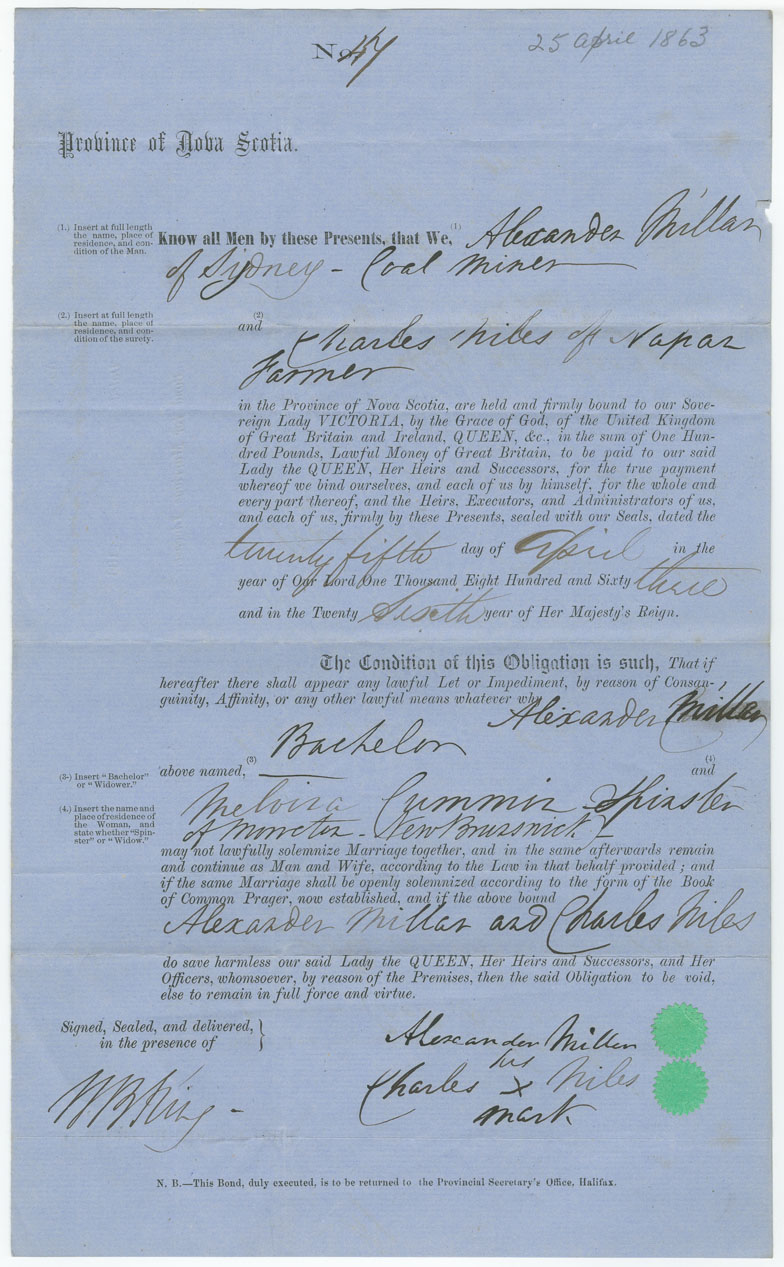 No. 47
25 april 1863
Province of Nova Scotia.
(1.) Insert at full length
the name, place of
residence, and con-
dition of the Man.
Know all Men by these Presents, that We, (1) Alexander Millar
of Sydney - Coal Miner
(2.) Insert at full length
the name, place of
residence, and con-
dition of the surety.
(2)
and
Charles Niles of Napan
Farmer
in the Province of Nova Scotia, are held and firmly bound to our Sove-
reign Lady VICTORIA, by the Grace of God, of the United Kingdom
of Great Britain and Ireland, QUEEN, &c., in the sum of One Hun-
dred Pounds, Lawful Money of Great Britain, to be paid to our said
Lady the QUEEN, Her Heirs and Successors, for the true payment
whereof we bind ourselves, and each of us by himself, for the whole and
every part thereof, and the Heirs, Executors, and Administrators of us,
and each of us, firmly by these Presents, sealed with our Seals, dated the
twenty fifth day of April in the
year of Our Lord One Thousand Eight Hundred and Sixty three
and in the Twenty Sixth year of Her Majesty's Reign.
The Condition of this Obligation is such, That if
hereafter there shall appear any lawful Let or Impediment, by reason of Consan-
guinity, Affinity, or any other lawful means whatever why
Alexander Millar
Bachelor
(3-) Insert "Bachelor"
or "Widower."
above named, (3) (4) and
(4.) Insert the name and
place of residence of
the Woman, and
state whether "Spin-
ster" or "Widow."
Melvira Cummin Spinster
of Moncton - New Brunsnick -
may not lawfully solemnize Marriage together, and in the same afterwards remain
and continue as Man and Wife, according to the Law in that behalf provided; and
if the same Marriage shall be openly solemnized according to the form of the Book
of Common Prager, now established, and if the above bound
Alexander Millar and Charles Niles
do save harmless our said Lady the QUEEN, Her Heirs and Successors, and Her
Officers, whomsoever, by reason of the Premises, then the said Obligation to be void,
else to remain in full force and virtue.
Signed, Sealed, and delivered,
in the presence of
Alexander Millar
his
Charles X Niles
mark
King -
N. B.—This Bond, duly executed, is to be returned to the Provincial Secretary's Office, Halifax.